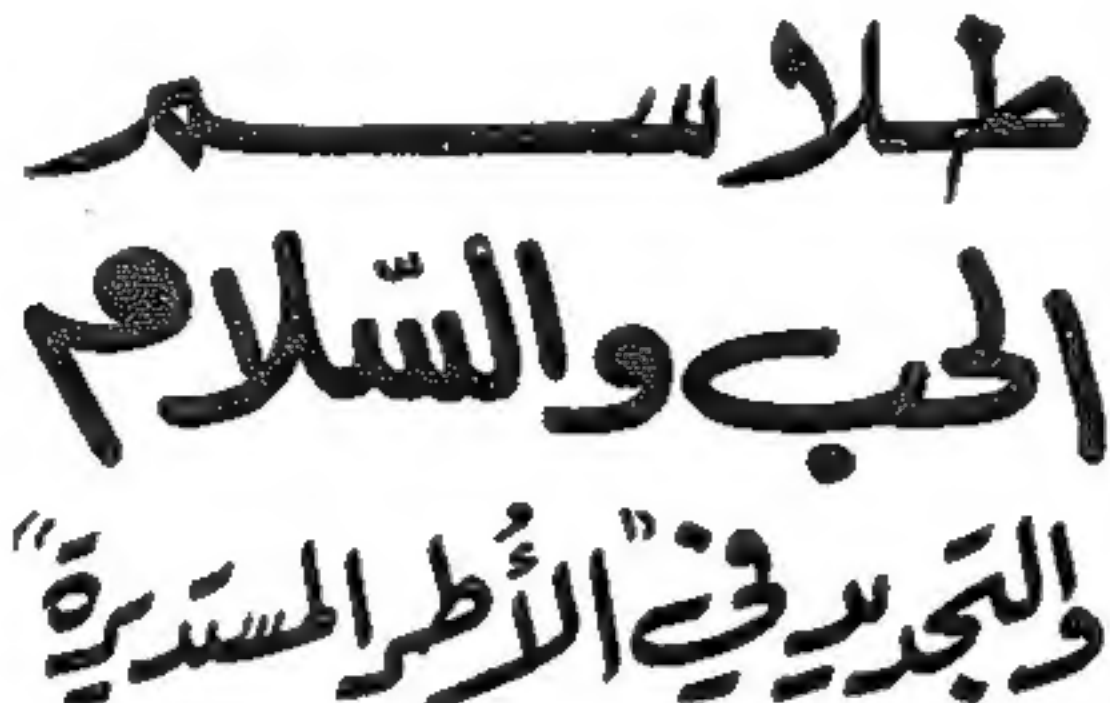 طلاسم
الحب والسّلام
والتجديد في "الأُطر المستديرة"